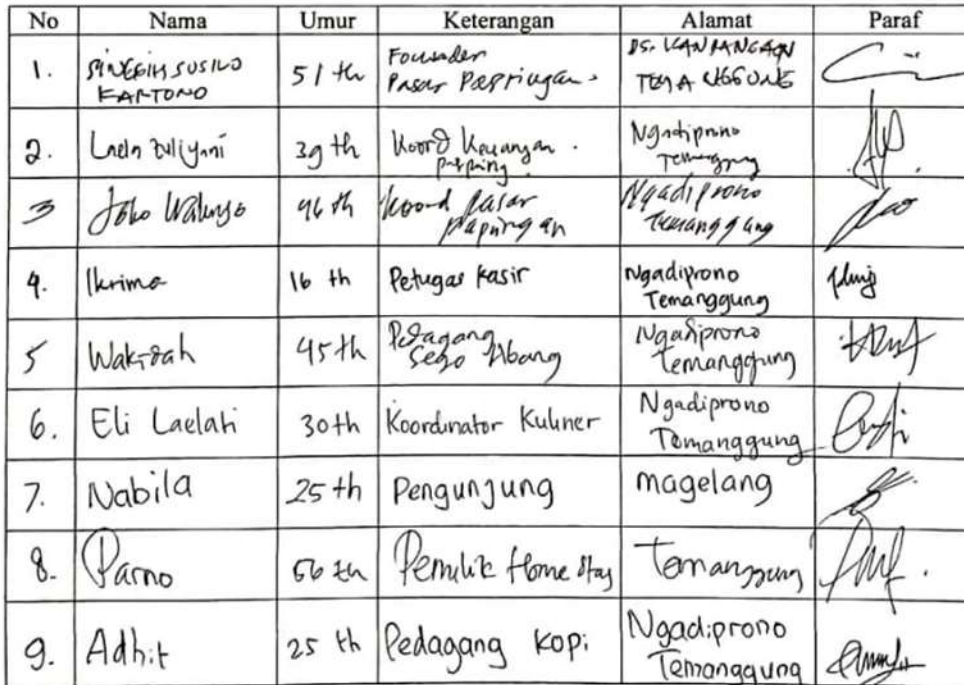 No Nama Umur Keterangan Alamat Paraf
1. SINGGIH SUSILO KARTONO 51 th Founder Pasar Papringan. DS. KANDANGAN TEMANGGUNG
2. Laela Zuliyani 39 th Koord Keuangan. papring. Ngadiprono Temanggung
3 Joko Waluyo 46 th Koord pasar papringan Ngadiprono Temanggung
4. Ikrima 16 th Petugas Kasir Ngadiprono Temanggung
5 Wakidah 45 th Pedagang Sego Abang Ngadiprono Temanggung
6. Eli Laelati 30 th Koordinator Kuliner Ngadiprono Temanggung
7. Nabila 25 th Pengunjung magelang
8. Parno 56 th Pemilik Home Stay Temanggung
9. Adhit 25 th Pedagang Kopi Ngadiprono Temanggung